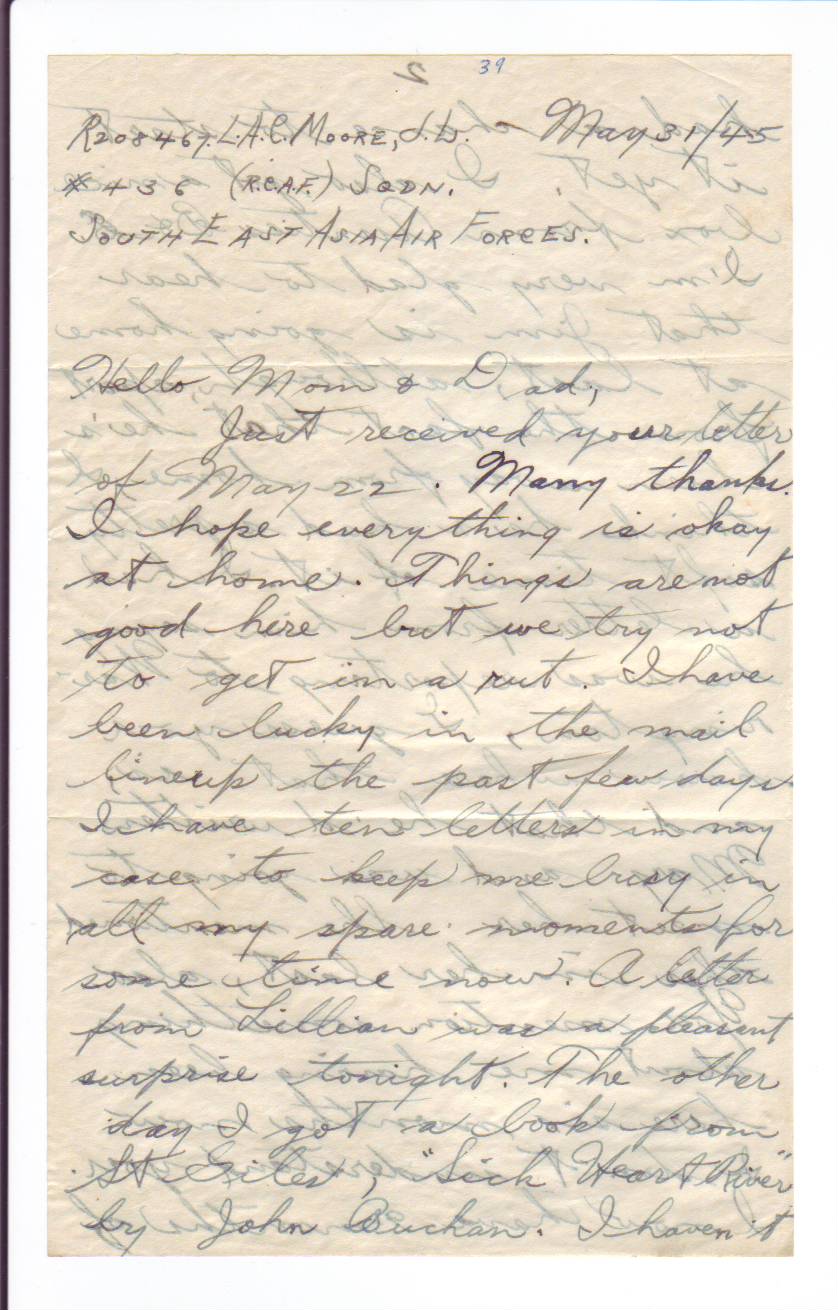 39
R208467. L.A.C. MOORE, J.W. - May 31/45
#436 (R.C.A.F.) SQDN.
SOUTH EAST ASIA AIR FORCES.
Hello Mom & Dad,
Just received your letter
of May 22. Many thanks.
I hope everything is okay
at home. Things are not
good here but we try not
to get in a rut. I have
been lucky in the mail
lineup the past few days.
I have ten letters in my
case to keep me busy in
all my spare moments for
some time now. A letter
from Lillian was a pleasant
surprise tonight. The other
day I got a book from
St Giles, "Sick Heart River"
by John Buchan. I haven't